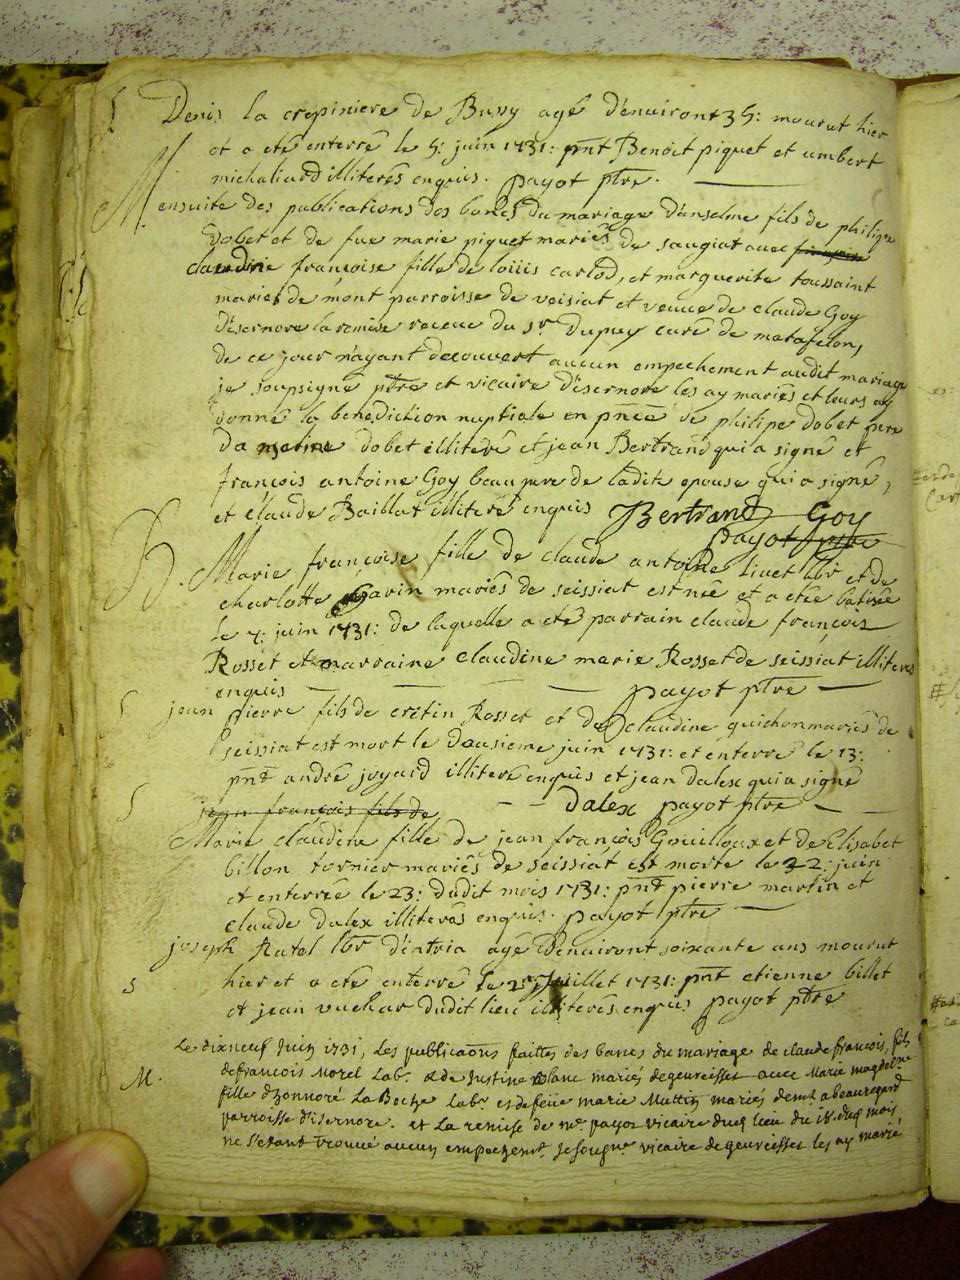 S Denis la crepiniere de Bussy agé d'enuiront 35: mourut hier
et a eté enterré le 5: juin 1731: pnt Benoit piquet et umbert
michaliard illiterés enquis. payot ptre.
M. ensuite des publications des bancs du mariage d'anselme fils de philipe
dobet et de fue marie piquet mariés de saugiat avec
claudine françoise fille de loüis carlod, et marguerite toussaint
mariés de mont parroisse de veisiat et veuve de claude Goy
d'isernore la remise receue du sr. Dupuy curé de matafelon,
de ce jour n'ayant decouvert aucun empechement audit mariage
je soussigné ptre et vicaire d'isernore les ay mariés et leurs ay
donné la benediction nuptiale en pnce de philipe dobet pere
dobet illiteré et jean Bertrand qui a signé et
françois antoine Goy beaupere de ladite epouse qui a signé,
et claude Baillat illiteré enquis Bertrand Goy
payot ptre
B. Marie françoise fille de claude antoine Livet lbr et de
charlotte Gavin mariés de seissiat est née et a etée batisée
le 7: juin 1731: de laquelle a eté parrain claude françois
Rosset et marraine claudine marie Rosset de seissiat illiteres
enquis payot ptre
S jean pierre fils de cretin Rosset et de claudine guichon mariés de
seissiat est mort le deusieme juin 1731: et enterré le 13:
pnt andré joyard illiteré enquis et jean dalex qui a signé
jean françois fils de dalex payot ptre
S Marie claudine fille de jean françois Gouilloux et de Elisabet
billon tornier mariés de seissiat est morte le 22: juin
et enterrée le 23: dudit mois 1731: pnt pierre martin et
claude dalex illiterés enquis. payot ptre
joseph Ratel lbr d'intria agé d'enuiront soixante ans mourut
S hier et a eté enterré le juillet 1731: pnt etienne billet
et jean vuchar dudit lieu illiterés enquis payot ptre
Le dixneuf Juin 1731, Les publicaons faittes des bancs du mariage de claude françois, fils
M. de francois Morel Labr. & de Justine Blanc mariés de geureisset avec Marie magdelne
fille d'honnoré La Beche Labr et de feüe marie Muttin mariés dem. a beauregard
parroisse d'isernore. et La remise de Mr. payot vicaire dud lieu du 18. dud mois
ne s'etant trouvé aucun empechemt. Je sousgné vicaire de geureisset les ay marié